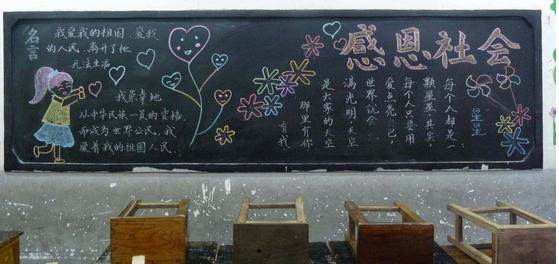 名言
我爱我的祖国,爱我
的人民,离开了他
无法生活
我荣幸地
从中华民族一员的资格
而成为世界公民。我
爱着我的祖国人民。
感恩社会
星星
每个人都是一
颗星星
每个人只要用
爱点亮自己,
世界就会
满光明,天空
是大家的天空
那里有你
有我